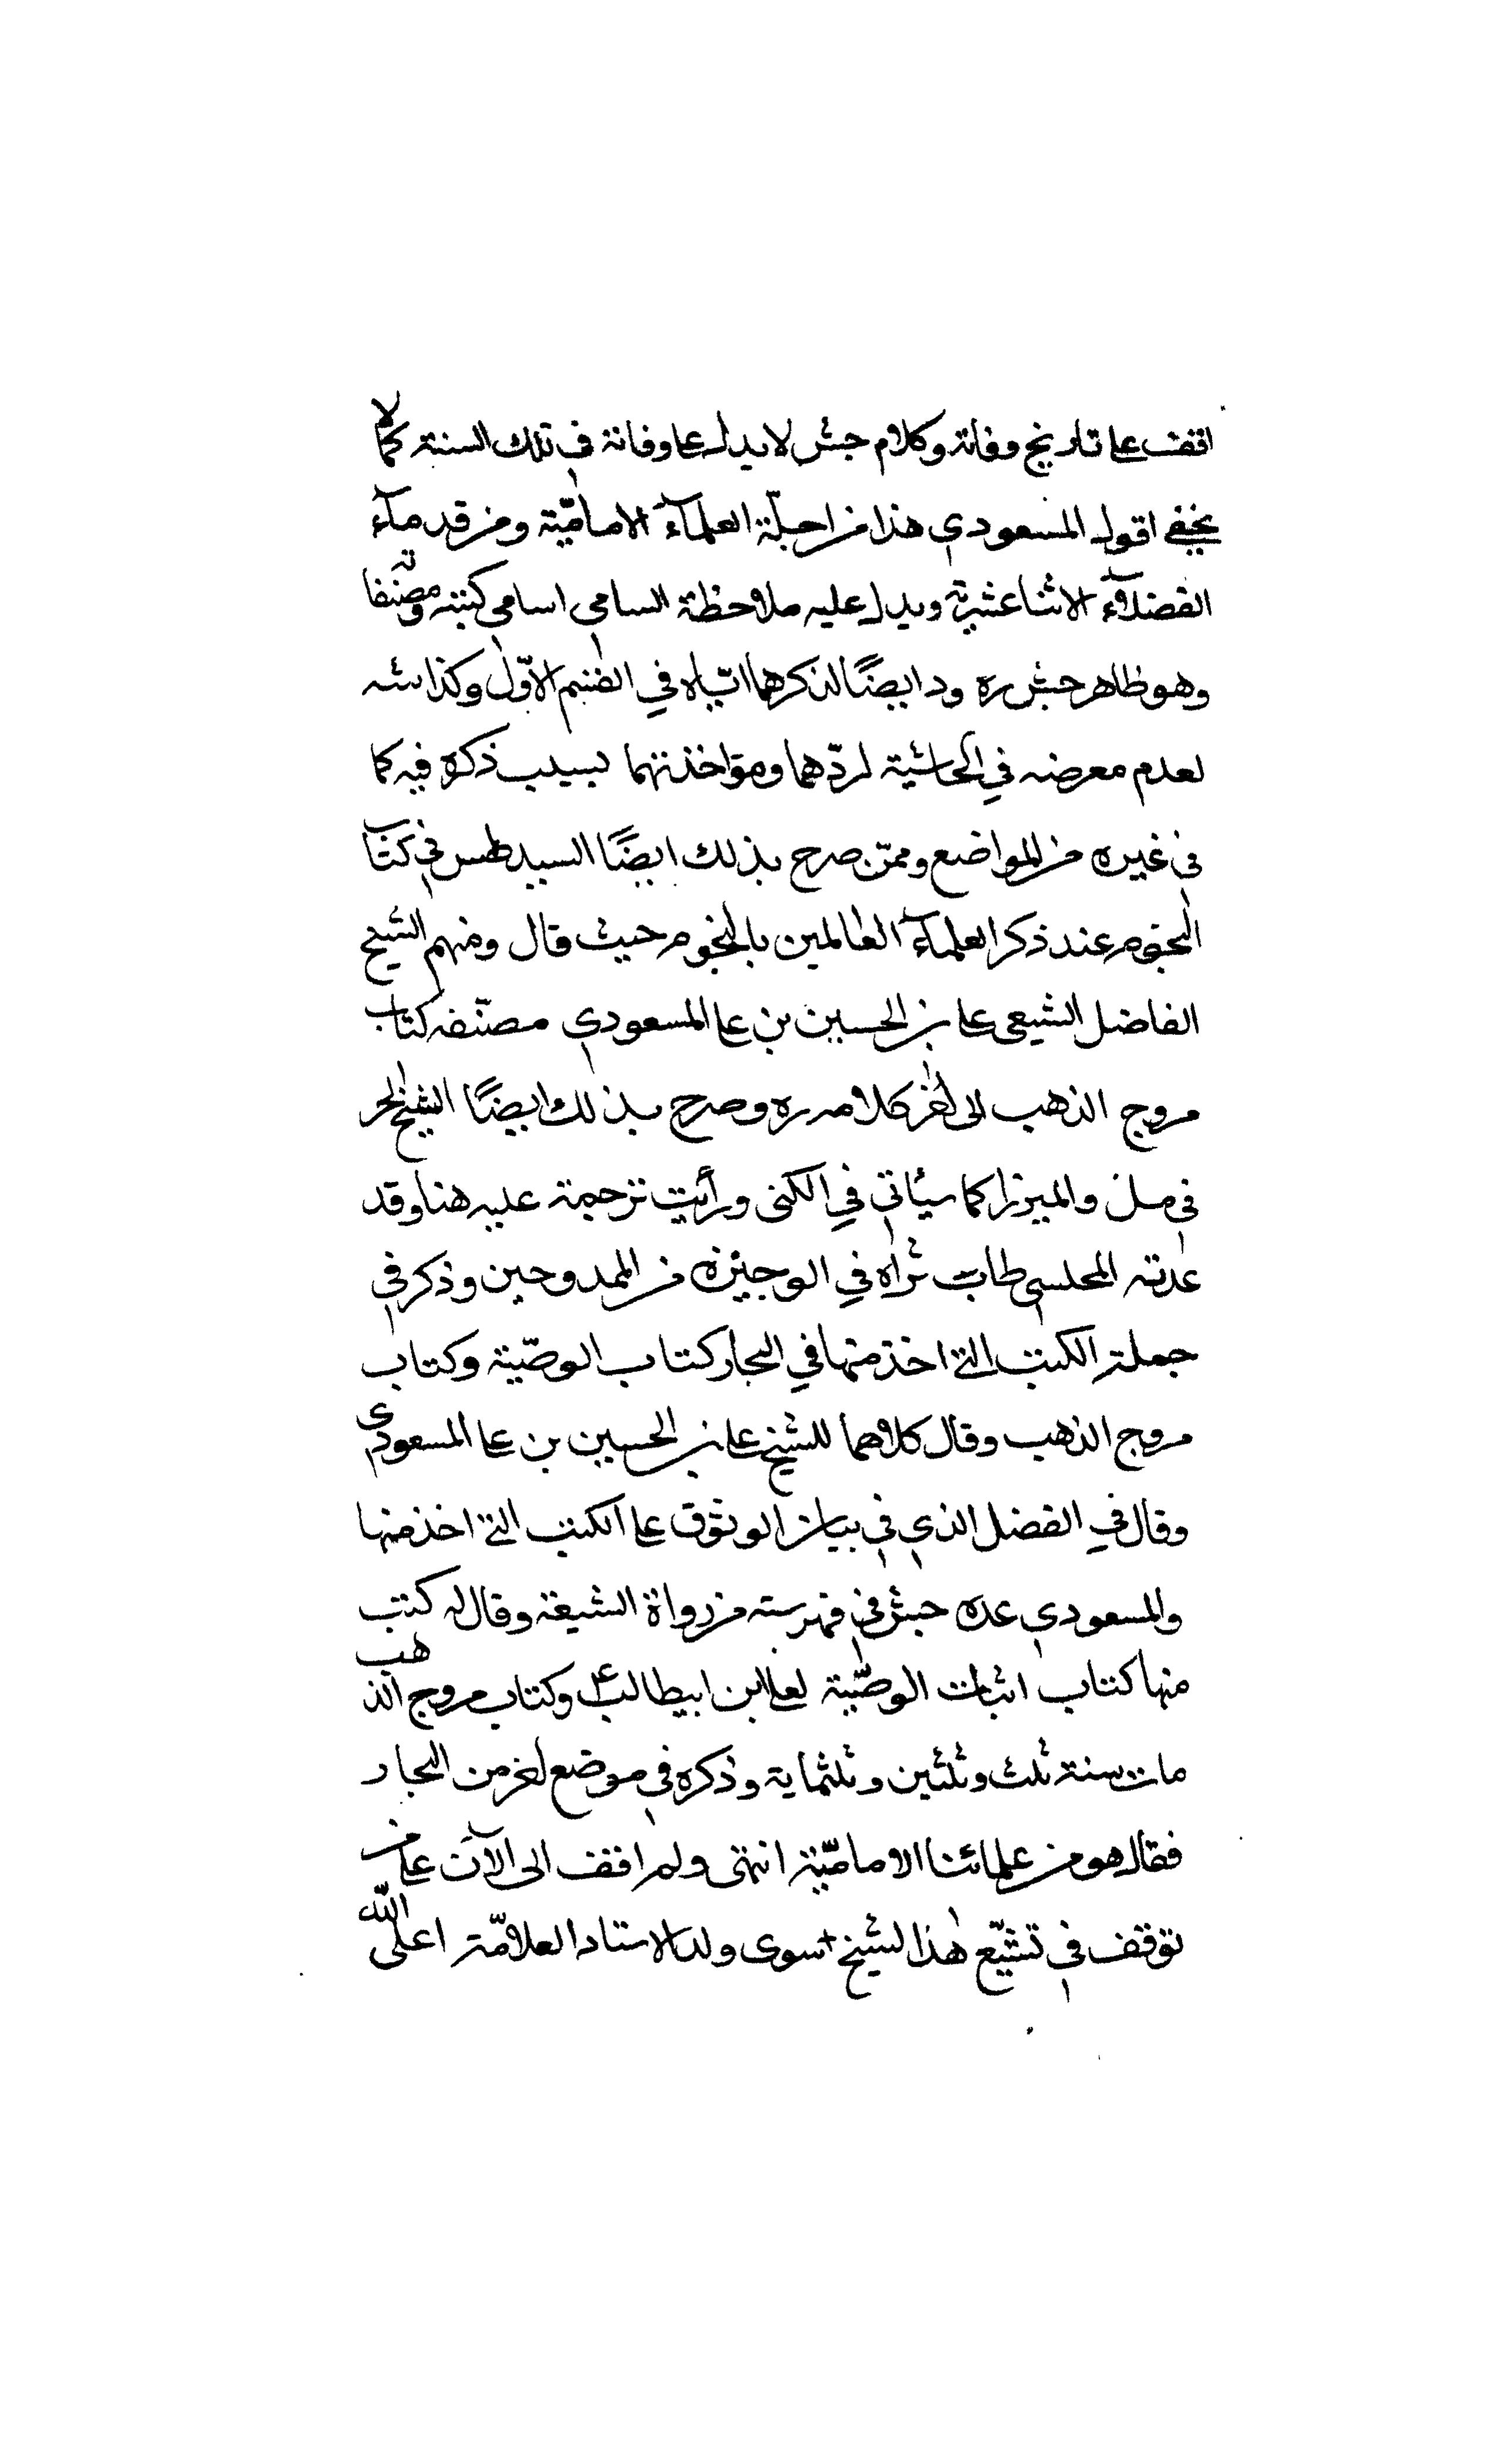 اقف على تاريخ وفاته وكلام جش لا يدل على وفاته في تلك السنة كما لا
يخفى اقول المسعودي هذا من اجلّة العلمآء الاماميّة ومن قدمآء
الفضلآء الاثنا عشرية ويدل عليه ملاحظة السامي اسامي كتبه ومصنّفاته
وهو ظاهر جش ره ود ايضًا لذكرهما ايّاه في القسم الاوّل وكذا شه
لعدم تعرضه في الحاشية لردّهما ومؤاخذتهما بسبب ذكره فيه كما
في غيره من المواضع وممّن صرح بذلك ايضًا السيد طس في كتاب
النجوم عند ذكر العلمآء العالمين بالنجوم حيث قال ومنهم الشيخ
الفاضل الشيعي علي بن الحسين بن علي المسعودي مصنّف كتاب
مروج الذهب الى اخر كلامه ره وصرح بذلك ايضًا الشيخ الحر
في مل والميرزا كما سيأتي في الكنى ورأيت ترحمة عليه هنا وقد
عدته المجلسي طاب ثراه في الوجيزة من الممدوحين وذكر في
جملة الكتب التي اخذ منها في البحار كتاب الوصّية وكتاب
مروج الذهب وقال كلاهما للشيخ علي بن الحسين بن علي المسعودي
وقال في الفصل الذي في بيان الوثوق على الكتب التي اخذ منها
والمسعودي عده جش في فهرسته من رواة الشيعة وقال له كتب
منها كتاب اثبات الوصّية لعلي ابن ابيطالب ع وكتاب مروج الذهب
مات سنة ثلث وثلثين وثلثماية وذكره في موضع اخر من البحار
فقال هو من علمائنا الاماميّة انتهى ولم اقف الى الآن على من
توقف في تشيّع هذا الشيخ سوى ولد الاستاد العلامّة اعلى الله